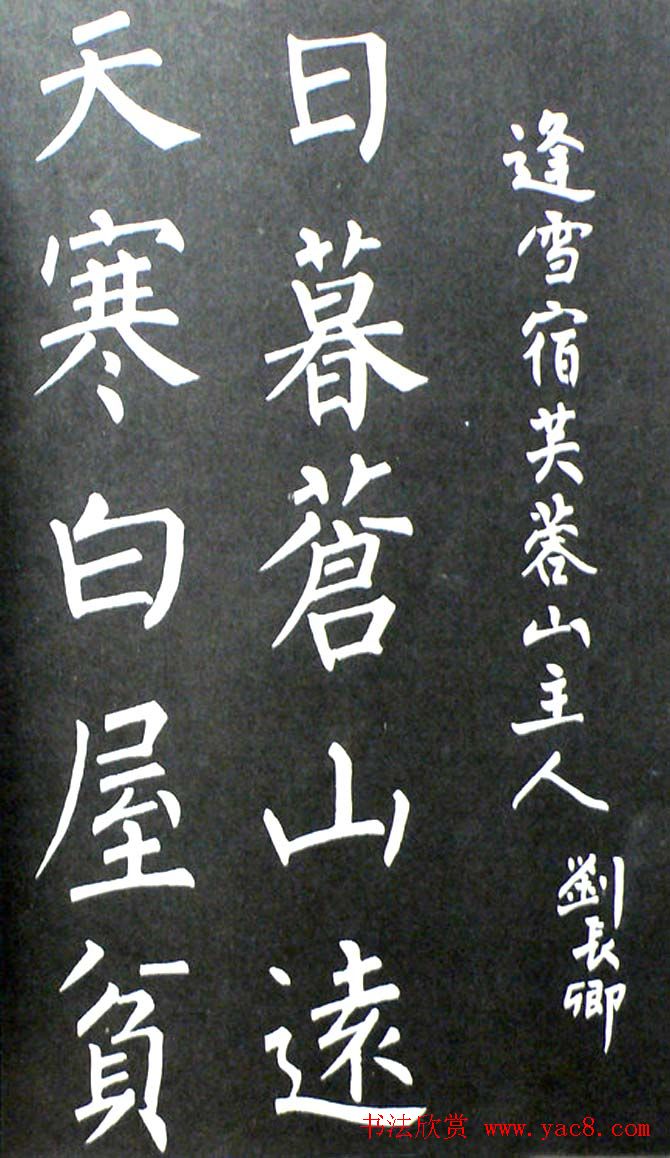 逢雪宿芙蓉山主人
劉長卿
日暮蒼山遠
天寒白屋貧
书法欣赏 www.yac8.com